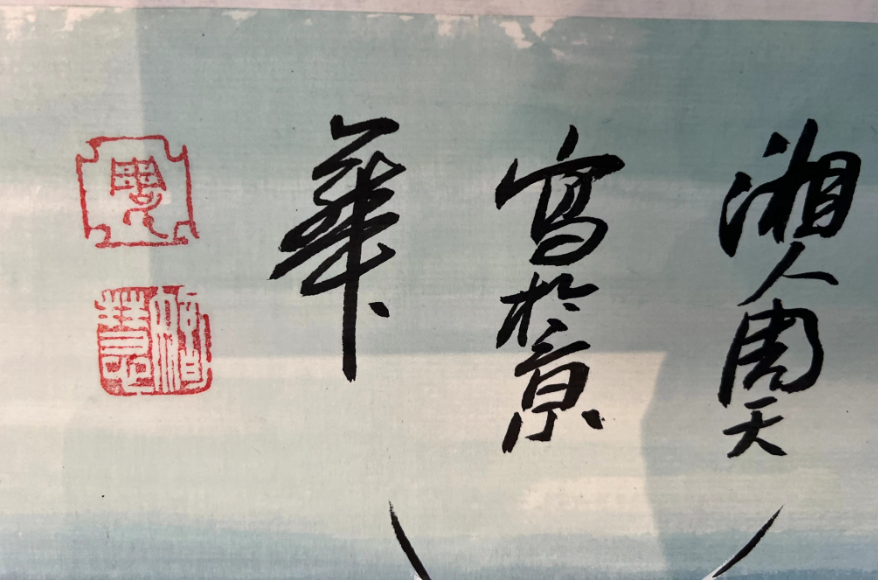 湘人周天
寫於京
華